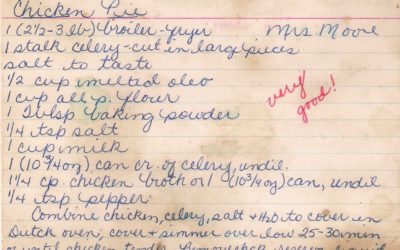 Chicken Pie
1 (2½-3 lb) broiler-fryer Mrs. Moore
1 stalk celery-cut in large pieces
salt to taste
½ cup melted oleo
1 cup all p. flour
very good!
1 Tblsp baking powder
¼ tsp salt
1 cup milk
1 (10¾ oz) can cr. of celery, undil.
1¼ cp chicken broth or 1 (10¾ oz) can, undil
¼ tsp pepper
Combine chicken, celery, salt + H2O to cover in
Dutch oven; cover + simmer over low 25-30 min
or until chicken tender. Remove